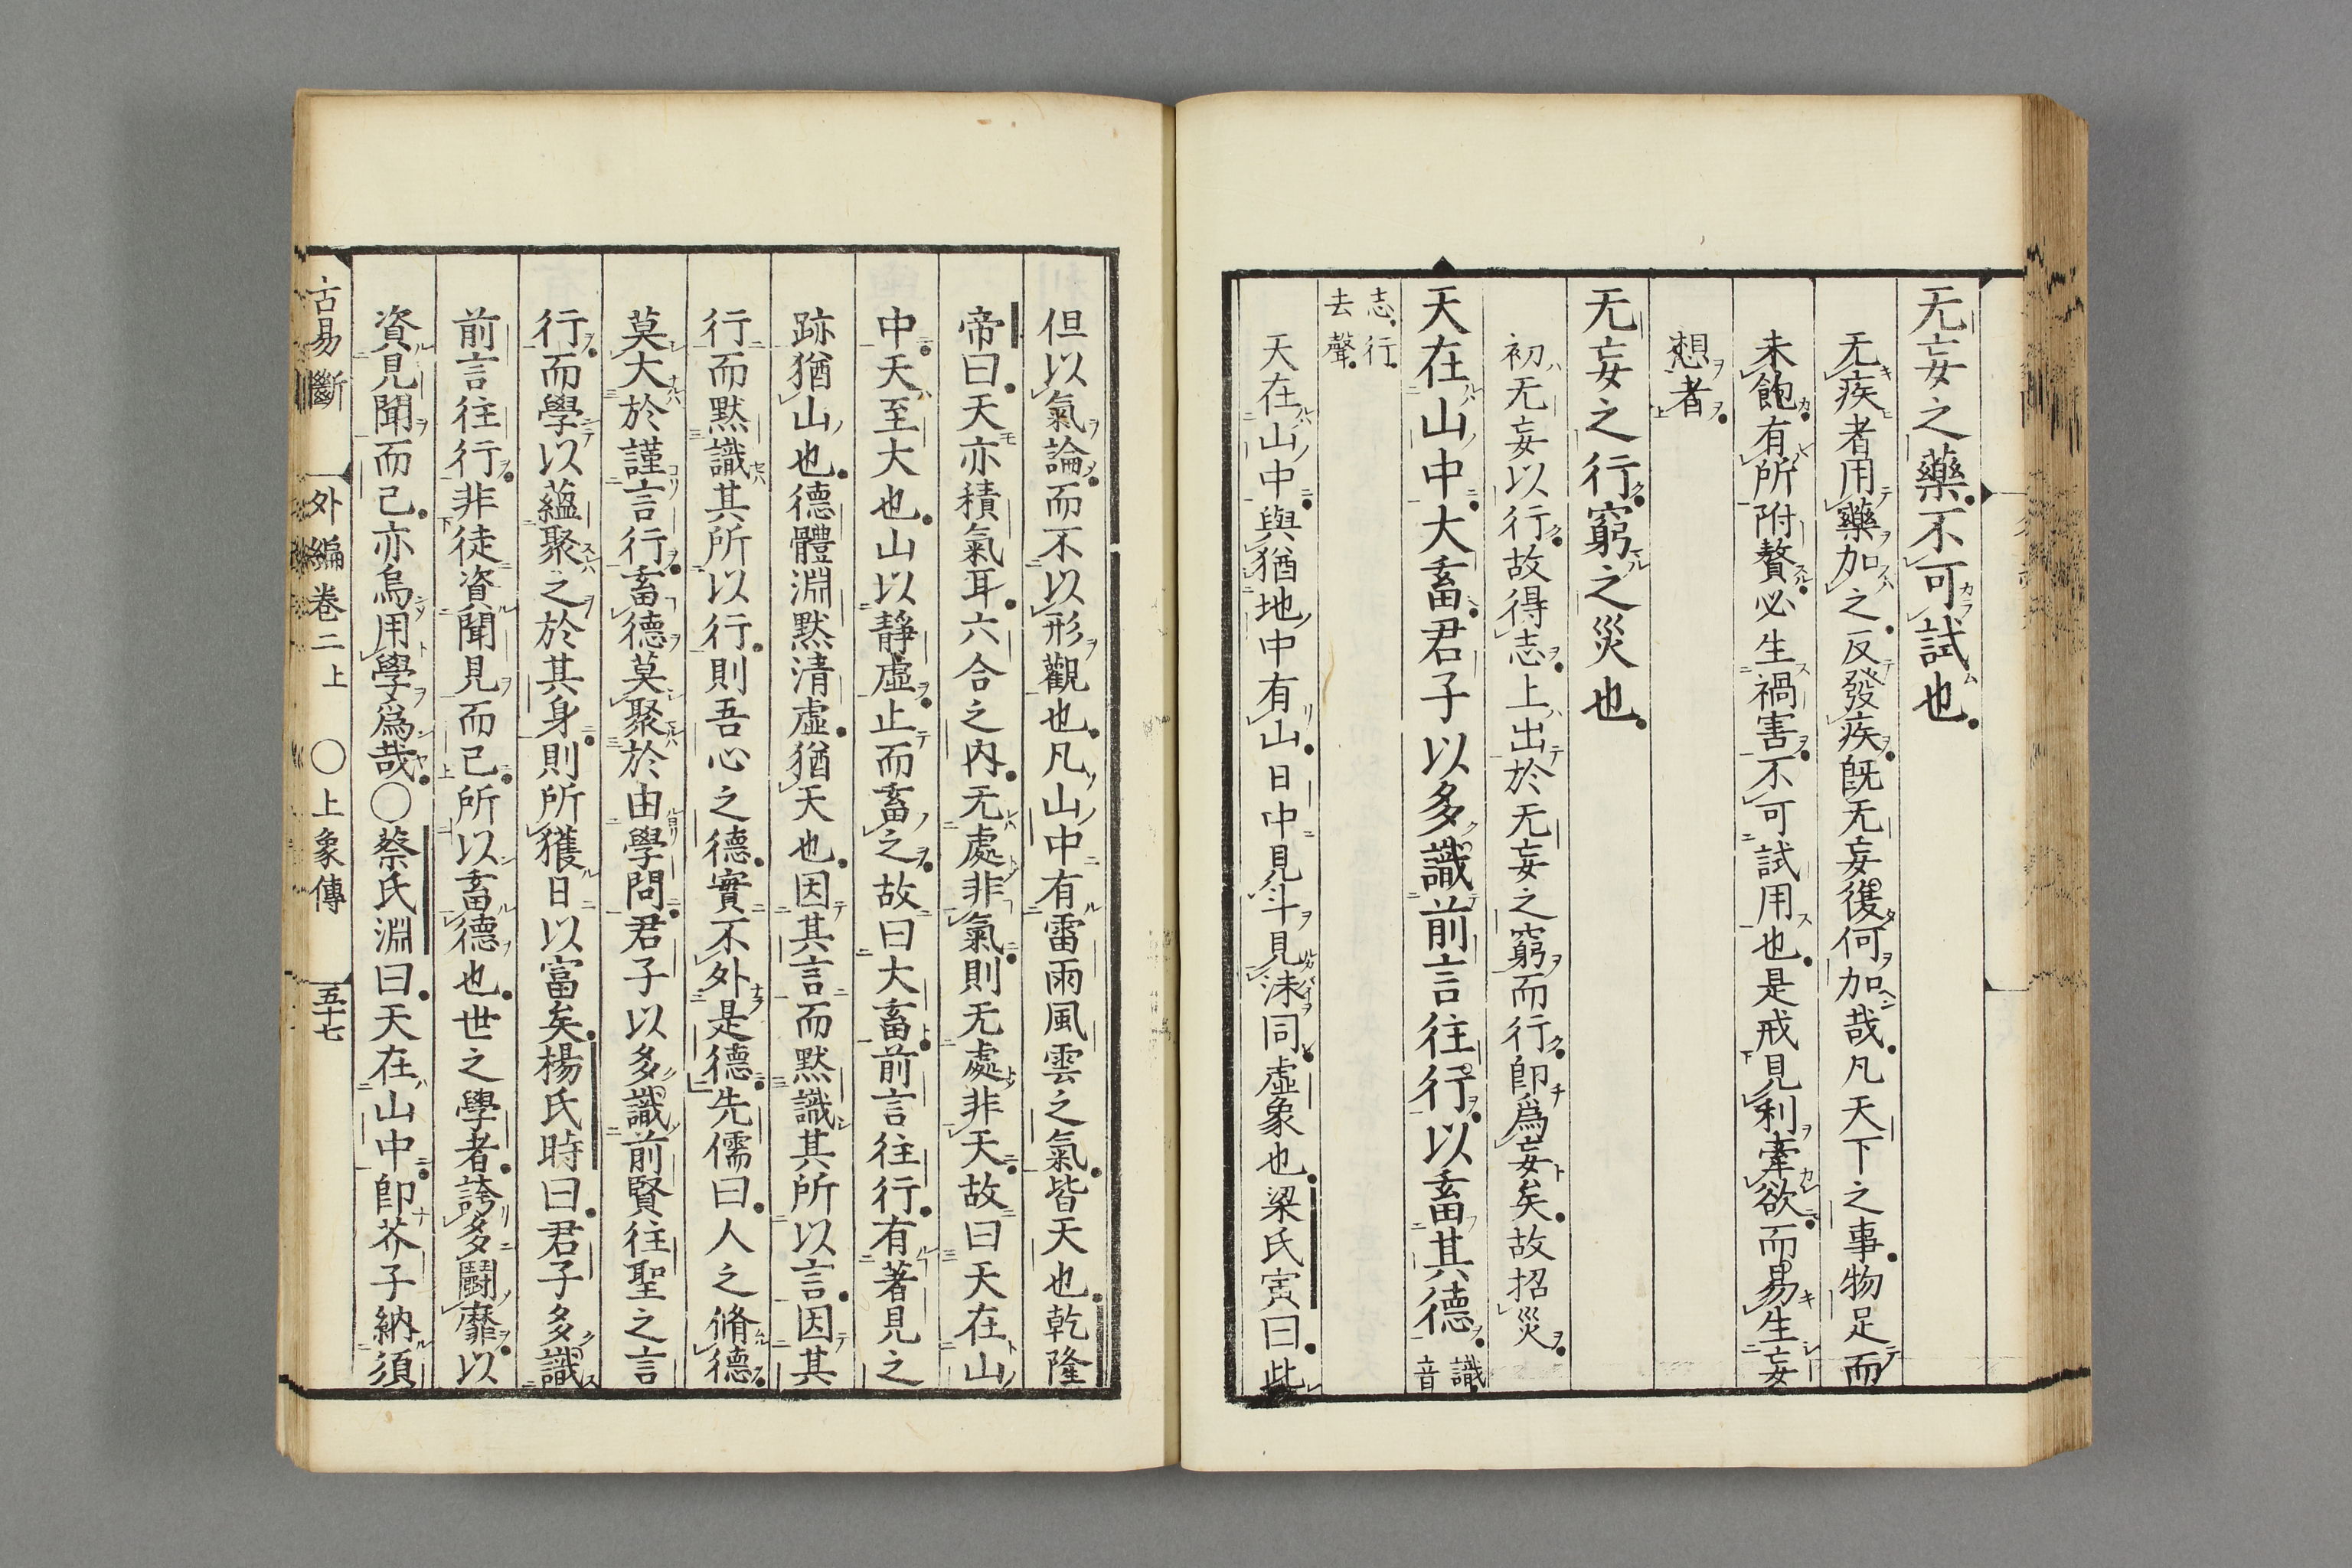 无妄之藥不可試也
无疾者用藥加之反發疾既无妄復何加哉凡天下之事物足而
未飽有所附贅必生禍害不可試用也是戒見利牽欲而易生妄
想者
无妄之行窮之災也
初无妄以行故得志上出於无妄之窮而行卽爲妄矣故招災
天在山中大畜君子以多識前言往行以畜其德 識音
志行去聲
天在山中與猶地中有山日中見斗見沬同虛象也梁氏寅曰此
但以氣論而不以形觀也凡山中有雷雨風雲之氣皆天也乾隆
帝曰天亦積氣耳六合之內无處非氣則无處非天故曰天在山
中天至大也山以靜虛止而畜之故曰大畜前言往行有著見之
跡猶山也德體淵默清虛猶天也因其言而默識其所以言因其
行而默識其所以行則吾心之德實不外是德先儒曰人之脩德
莫大於謹言行畜德莫聚於由學問君子以多識前賢往聖之言
行而學以蘊聚之於其身則所獲日以富矣楊氏時曰君子多識
前言往行非徒資聞見而已所以畜德也世之學者誇多鬬靡以
資見聞而已亦烏用學爲哉〇蔡氏淵曰天在山中卽芥子納須
古易斷 外編卷二上 〇上象傳 五十七